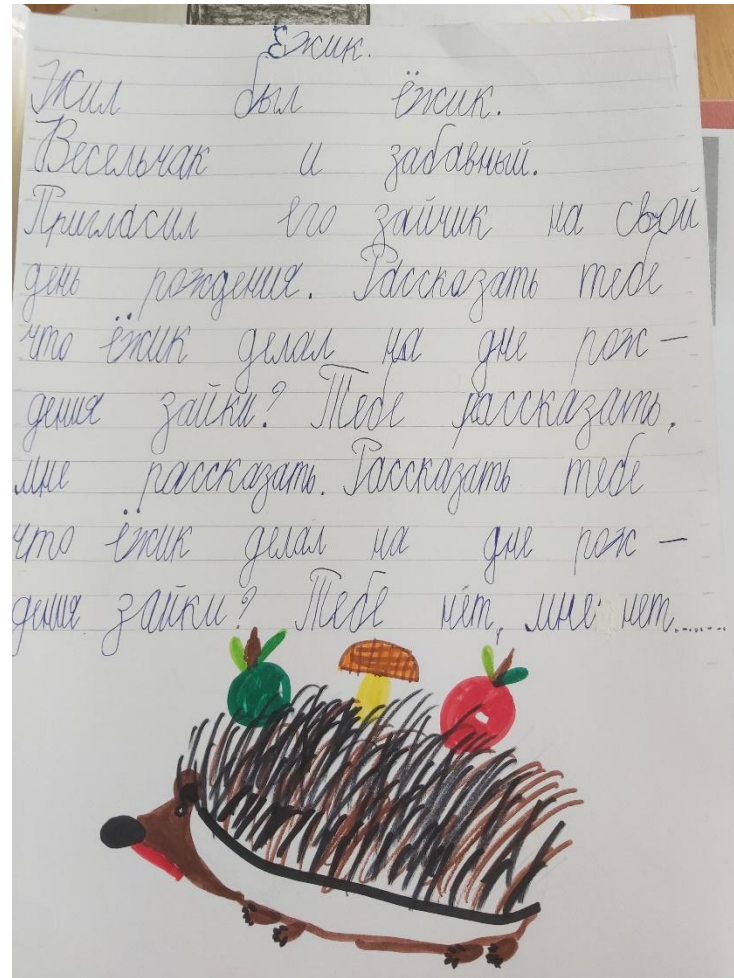 Ёжик.
Жил был ёжик.
Весельчак и забавный.
Пригласил его зайчик на свой
день рождения. Рассказать тебе
что ёжик делал на дне рож-
дения зайки? Тебе рассказать,
мне рассказать. Рассказать тебе
что ёжик делал на дне рож-
дения зайки? Тебе нет, мне нет.......